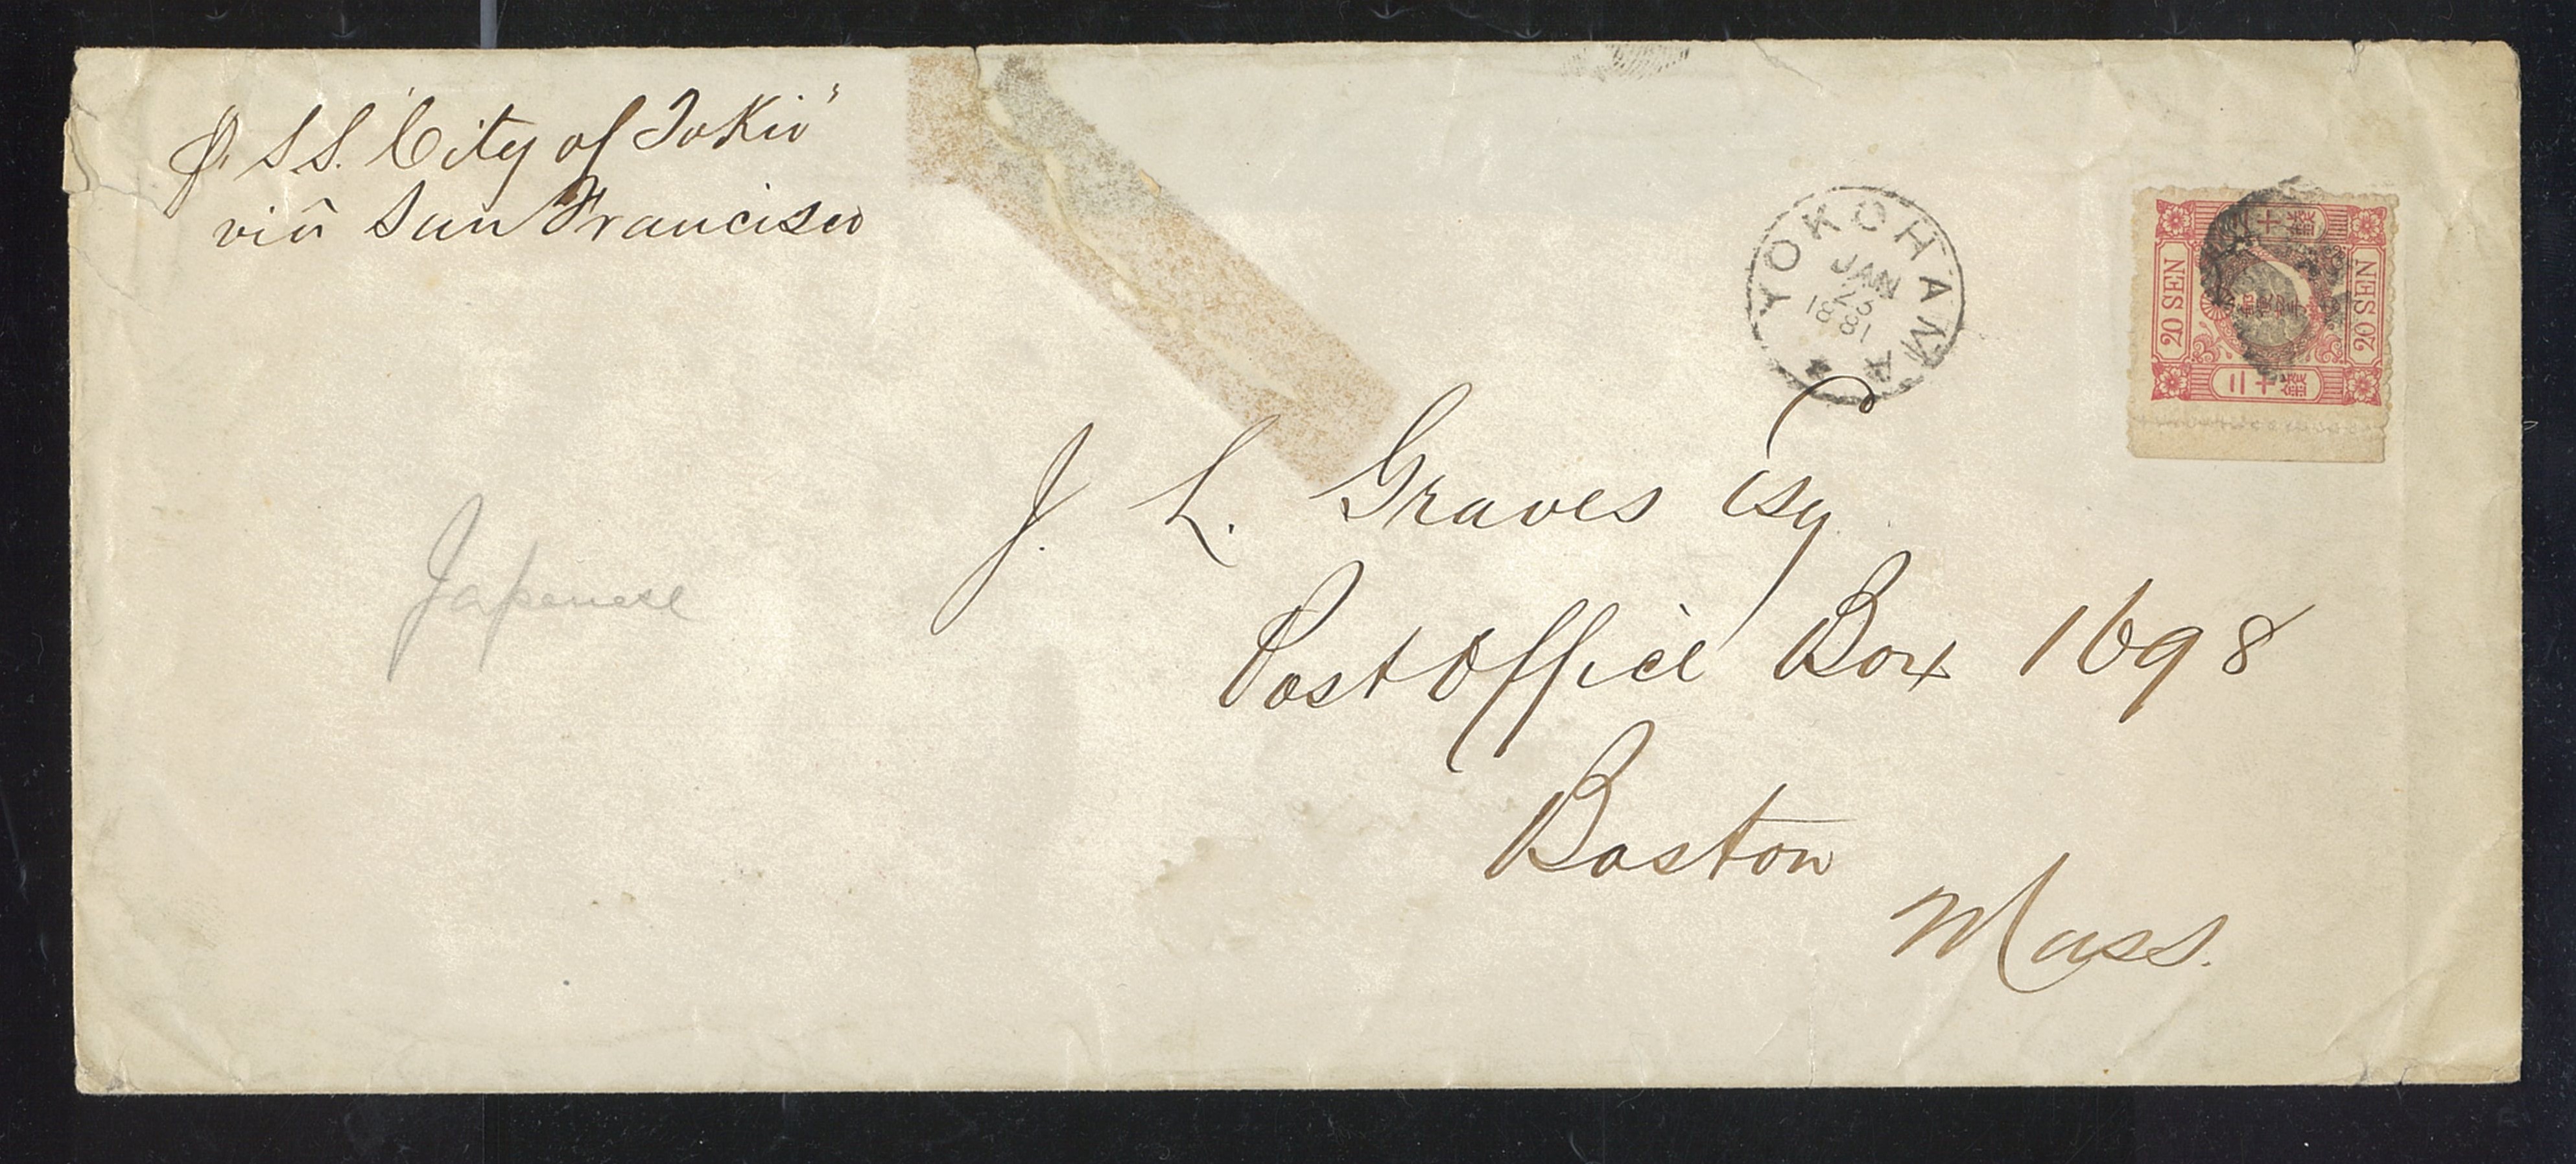 P. S.S. "City of Tokio"
viâ San Francisco
YOKOHAMA
JAN
23
1881
20 SEN
20 SEN
二十錢
二十錢
J. L. Graves Esq
Post Office Box 1698
Boston
Mass.
Japanese